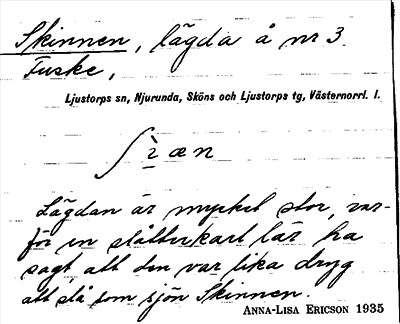 Skinnen, lägda å nr 3
Fuske,
Ljustorps sn, Njurunda, Sköns och Ljustorps tg, Västernorrl. l.
ʃìæn
Lägdan är mycket stor, var-
för en slåtterkarl lär ha
sagt att den var lika dryg
att slå som sjön Skinnen.
ANNA-LISA ERICSON 1935